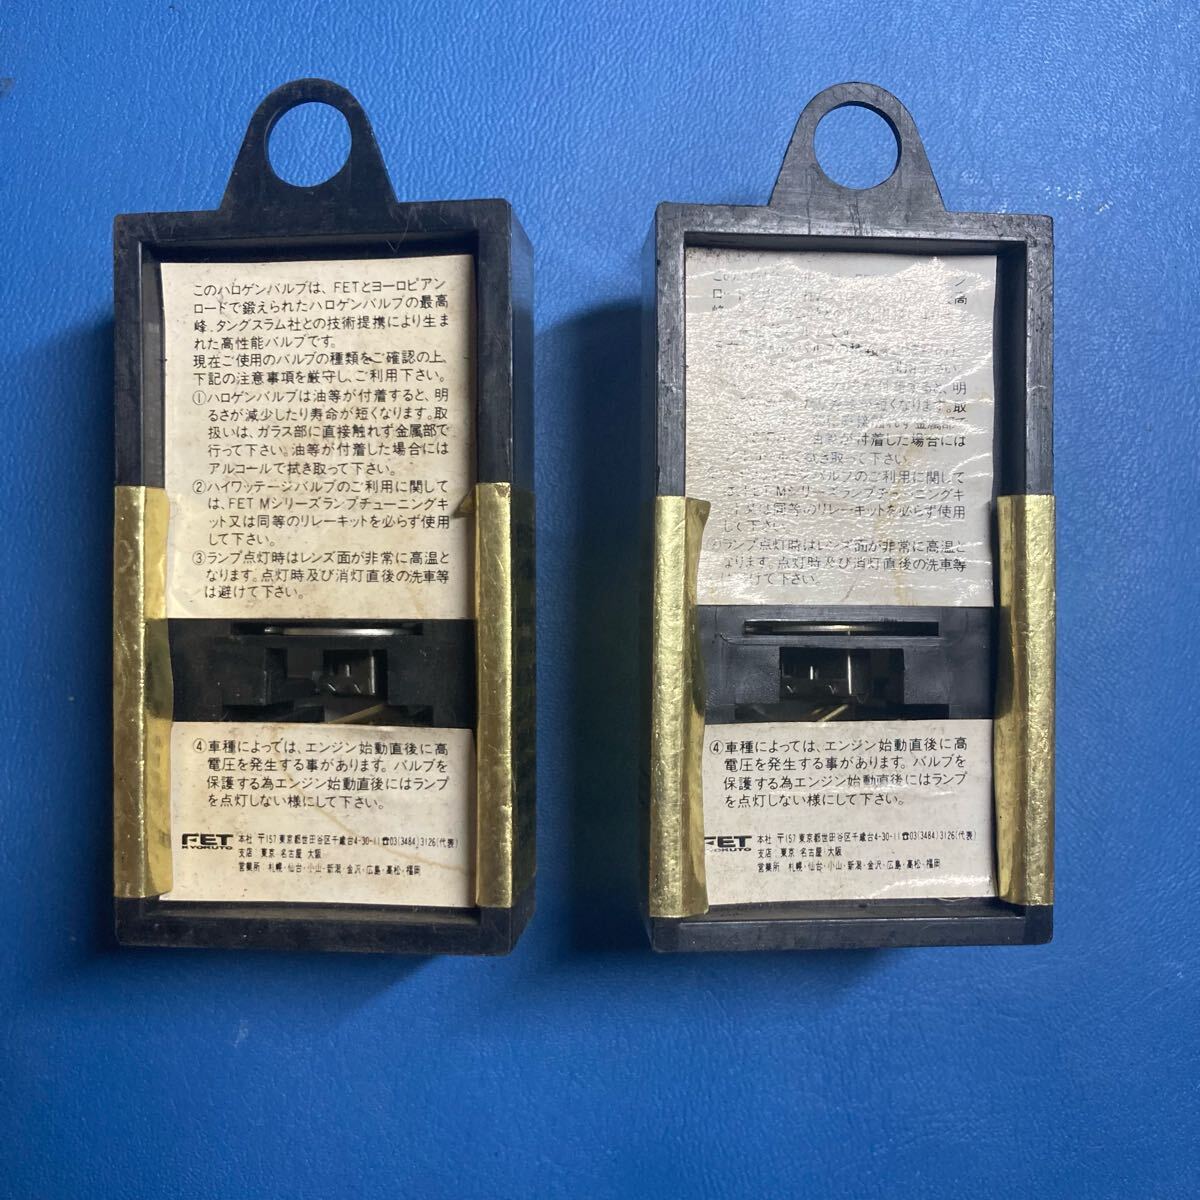 このハロゲンバルブは、FETとヨーロピアン
ロードで鍛えられたハロゲンバルブの最高
峰、タングスラム社との技術提携により生ま
れた高性能バルブです。
現在ご使用のバルブの種類をご確認の上、
下記の注意事項を厳守し、ご利用下さい。
①ハロゲンバルブは油等が付着すると、明
るさが減少したり寿命が短くなります。取
扱いは、ガラス部に直接触れず金属部で
行って下さい。油等が付着した場合には
アルコールで拭き取って下さい。
②ハイワッテージバルブのご利用に関して
は、FET Mシリーズランプチューニングキ
ット又は同等のリレーキットを必らず使用
して下さい。
③ランプ点灯時はレンズ面が非常に高温と
なります。点灯時及び消灯直後の洗車等
は避けて下さい。
④車種によっては、エンジン始動直後に高
電圧を発生する事があります。バルブを
保護する為エンジン始動直後にはランプ
を点灯しない様にして下さい。
FET KYOKUTO
本社 〒157 東京都世田谷区千歳台4-30-11☎03(3484)3126(代表)
支店 東京・名古屋・大阪
営業所 札幌・仙台・小山・新潟・金沢・広島・高松・福岡
ン
高
明
なります。取
れず金属部で
が付着した場合には
取って下さい。
バルブのご利用に関して
Mシリーズランプチューニングキ
は同等のリレーキットを必らず使用
して下さい。
ランプ点灯時はレンズ面が非常に高温と
なります。点灯時及び消灯直後の洗車等
は避けて下さい。
④車種によっては、エンジン始動直後に高
電圧を発生する事があります。バルブを
保護する為エンジン始動直後にはランプ
を点灯しない様にして下さい。
FET KYOKUTO
本社 〒157 東京都世田谷区千歳台4-30-11☎03(3484)3126(代表)
支店 東京・名古屋・大阪
営業所 札幌・仙台・小山・新潟・金沢・広島・高松・福岡